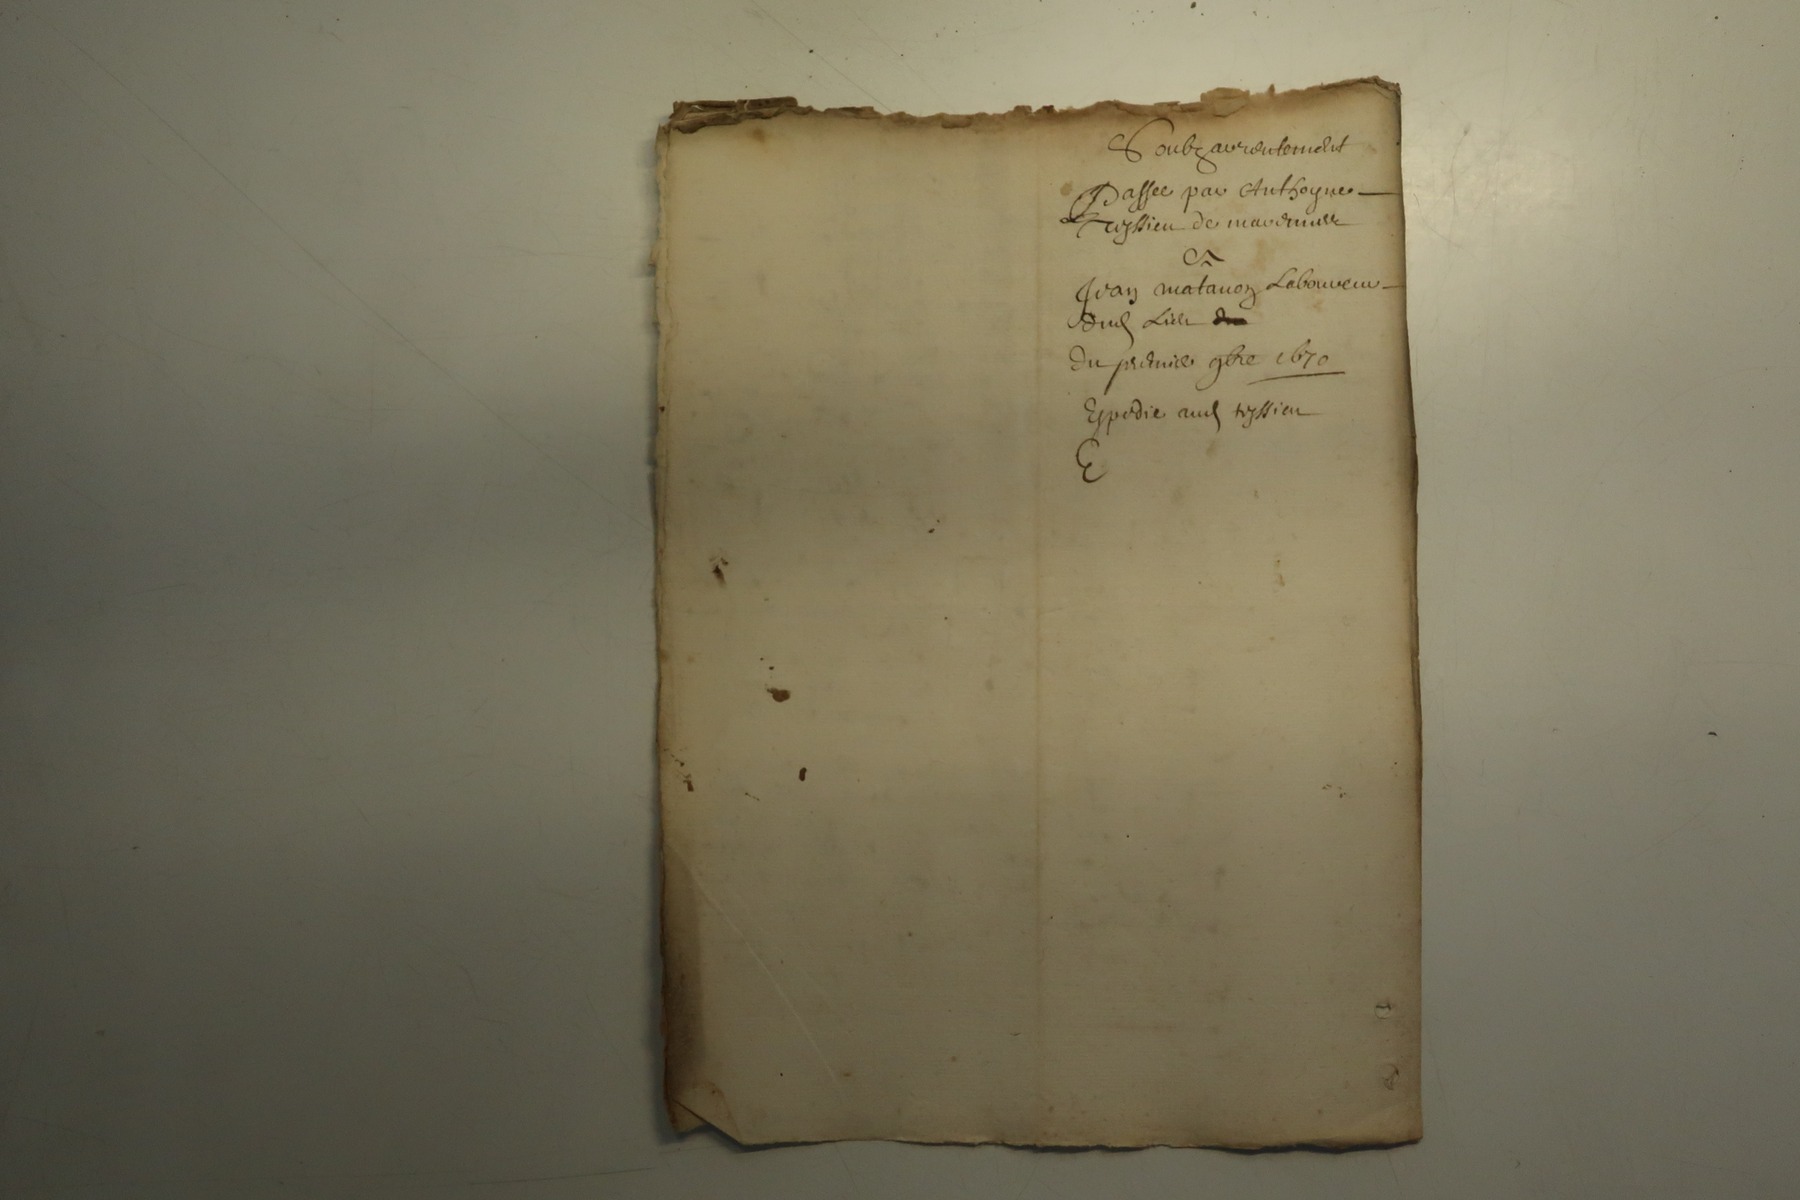 Soubzarrentement
Passee par Anthoyne
teyssieu de
A
Jean matanon Laboureur
dud Lieu
du premier 9bre 1670
Expedie aud teyssieu
E